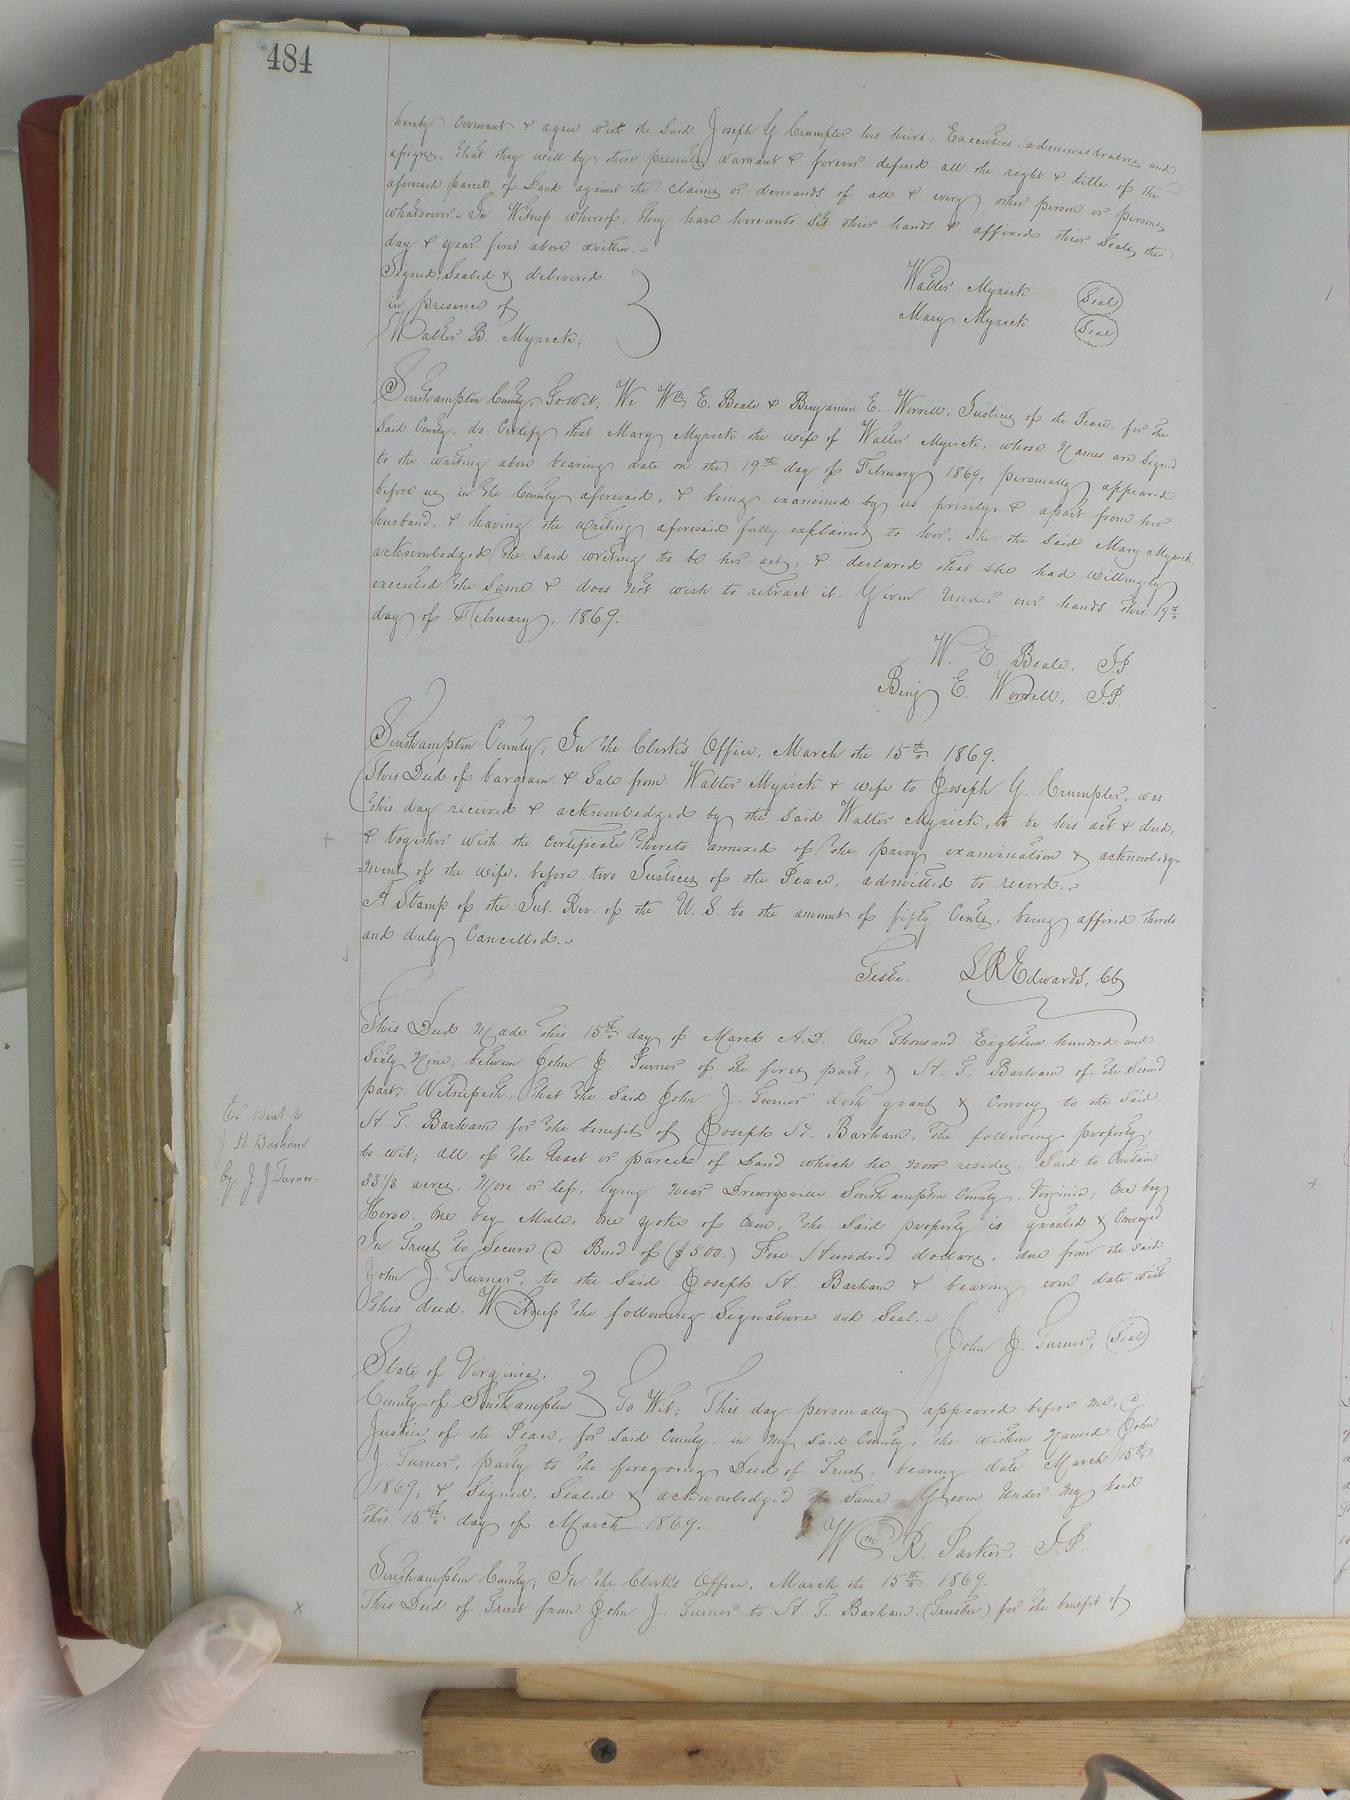 484
hereby covenant & agree with the said Joseph G. Crumpler his heirs, Executors, administrators and
assigns, that they will by these presents warrant & forever defend all the right & title of the
aforesaid parcel of Land against the claims or demands of all & every other person or persons
whatsoever. In Witness whereof, they have hereunto set their hands & affixed their seals, the
day & year first above written.
Signed, Sealed & delivered
in presence of
Walter B. Myrick.
Walter Myrick (Seal)
Mary Myrick (Seal)
Southampton County, To wit; We Wm E. Beale & Benjamin E. Worrell, Justices of the Peace, for the
said County, do Certify that Mary Myrick the wife of Walter Myrick, whose Names are signed
to the writing above bearing date on the 19th day of February 1869, personally appeared
before us in the County aforesaid, & being examined by us privily & apart from her
husband, & having the writing aforesaid fully explained to her, she the said Mary Myrick
acknowledged the said writing to be her act, & declared that she had willingly
executed the same & does not wish to retract it. Given under our hands this 19th
day of February, 1869.
W. E. Beale. J.P.
Benj E. Worrell, J.P.
Southampton County; In the Clerk's Office, March the 15th 1869.
This Deed of bargain & Sale from Walter Myrick & wife to Joseph G. Crumpler, was
this day received & acknowledged by the said Walter Myrick, to be his act & deed,
& together with the certificate thereto annexed of the privy examination & acknowledge-
=ment of the wife, before two Justices of the Peace, admitted to record.
A Stamp of the Int. Rev. of the U. S. to the amount of fifty Cents, being affixed thereto
and duly Cancelled.
Teste. L R Edwards, CC
This Deed Made this 15th day of March A.D. One Thousand Eighteen hundred and
Sixty Nine, between John J. Turner of the first part, & St. T. Barham of the Second
part; Witnesseth; that the Said John J. Turner doth grant & Convey to the Said
St. T. Barham for the benefit of Joseph St. Barham, the following property,
to wit; all of the tract or parcel of Land which he Now resides, Said to Contain
33 1/3 acres, More or less, lying Near Drewrysville Southampton County, Virginia; One bay
Horse, One bay Mule, One yoke of Oxen, the Said property is granted & Conveyed
In Trust to Secure a Bond of ($500.) Five Hundred dollars, due from the Said
John J. Turner, to the Said Joseph St. Barham & bearing even date with
this deed. Witness the following Signature and Seal.
John J. Turner, (Seal)
J H Barham
by J J Turner.
State of Virginia,
County of Southampton To Wit; This day personally appeared before me, a
Justice of the Peace, for Said County, in My Said County, the within Named John
J. Turner, party to the foregoing Deed of Trust, bearing date March 15th
1869, & Signed, Sealed & acknowledged the Same. Given Under My hand
this 15th day of March 1869.
Wm R. Parker, J.P.
Southampton County; In the Clerk's Office, March the 15th 1869.
This Deed of Trust from John J. Turner to St. T. Barham, (Trustee) for the benefit of